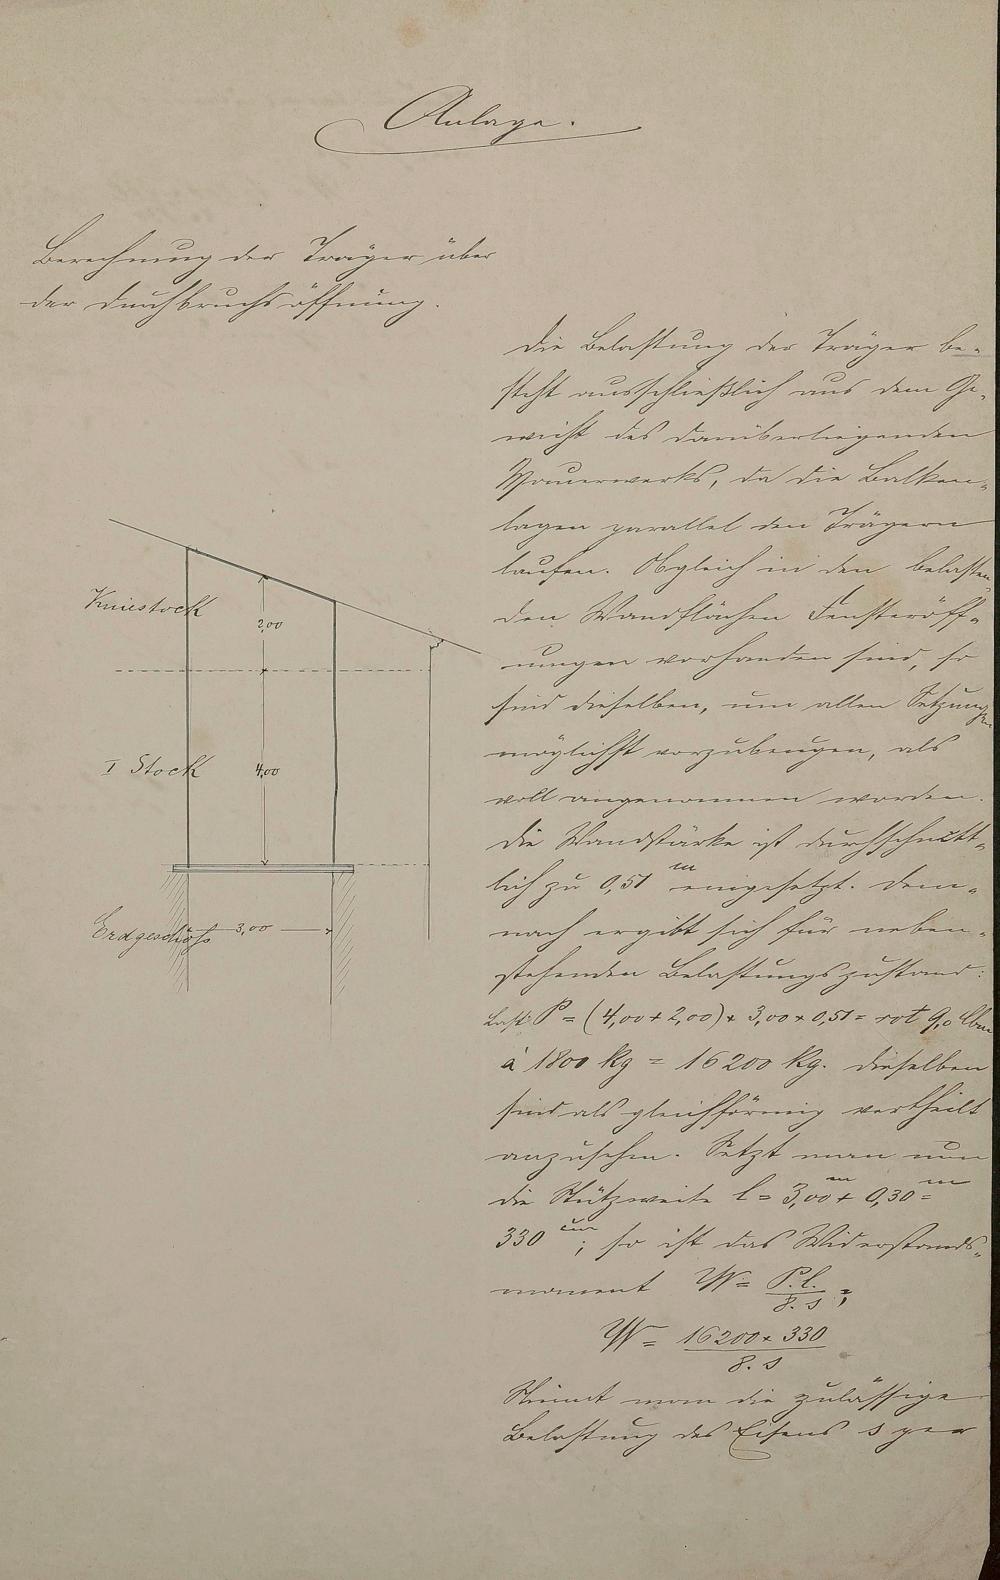 Anlage.
Berechnung der Träger über
der Durchbruchsöffnung.
Die Belastung der Träger be-
steht ausschließlich aus dem Ge-
wicht des darüberliegenden
Mauerwerks, da die Balken-
lagen parallel den Trägern
laufen. Obgleich in den belasten-
den Wandflächen Fensteröff-
nungen vorhanden sind, so
sind dieselben, um allen Setzungen
möglichst vorzubeugen, als
voll angenommen worden.
Die Wandstärke ist durchschnitt-
lich zu 0,51 m eingesetzt. Dem-
nach ergibt sich für neben-
stehenden Belastungszustand:
Last P = (4,00 + 2,00) × 3,00 × 0,51 = rot 9,0 cbm
à 1800 kg = 16200 kg. Dieselben
sind als gleichförmig vertheilt
anzusehen. Setzt man nun
die Stützweite l = 3,00 m + 0,30 m =
330 cm; so ist das Widerstands-
moment W = P.l. / 8.s ;
W = 16200 × 330 / 8.s
Nimmt man die zulässige
Belastung des Eisens s per
Kniestock
2,00
I Stock
4,00
Erdgeschoß
3,00